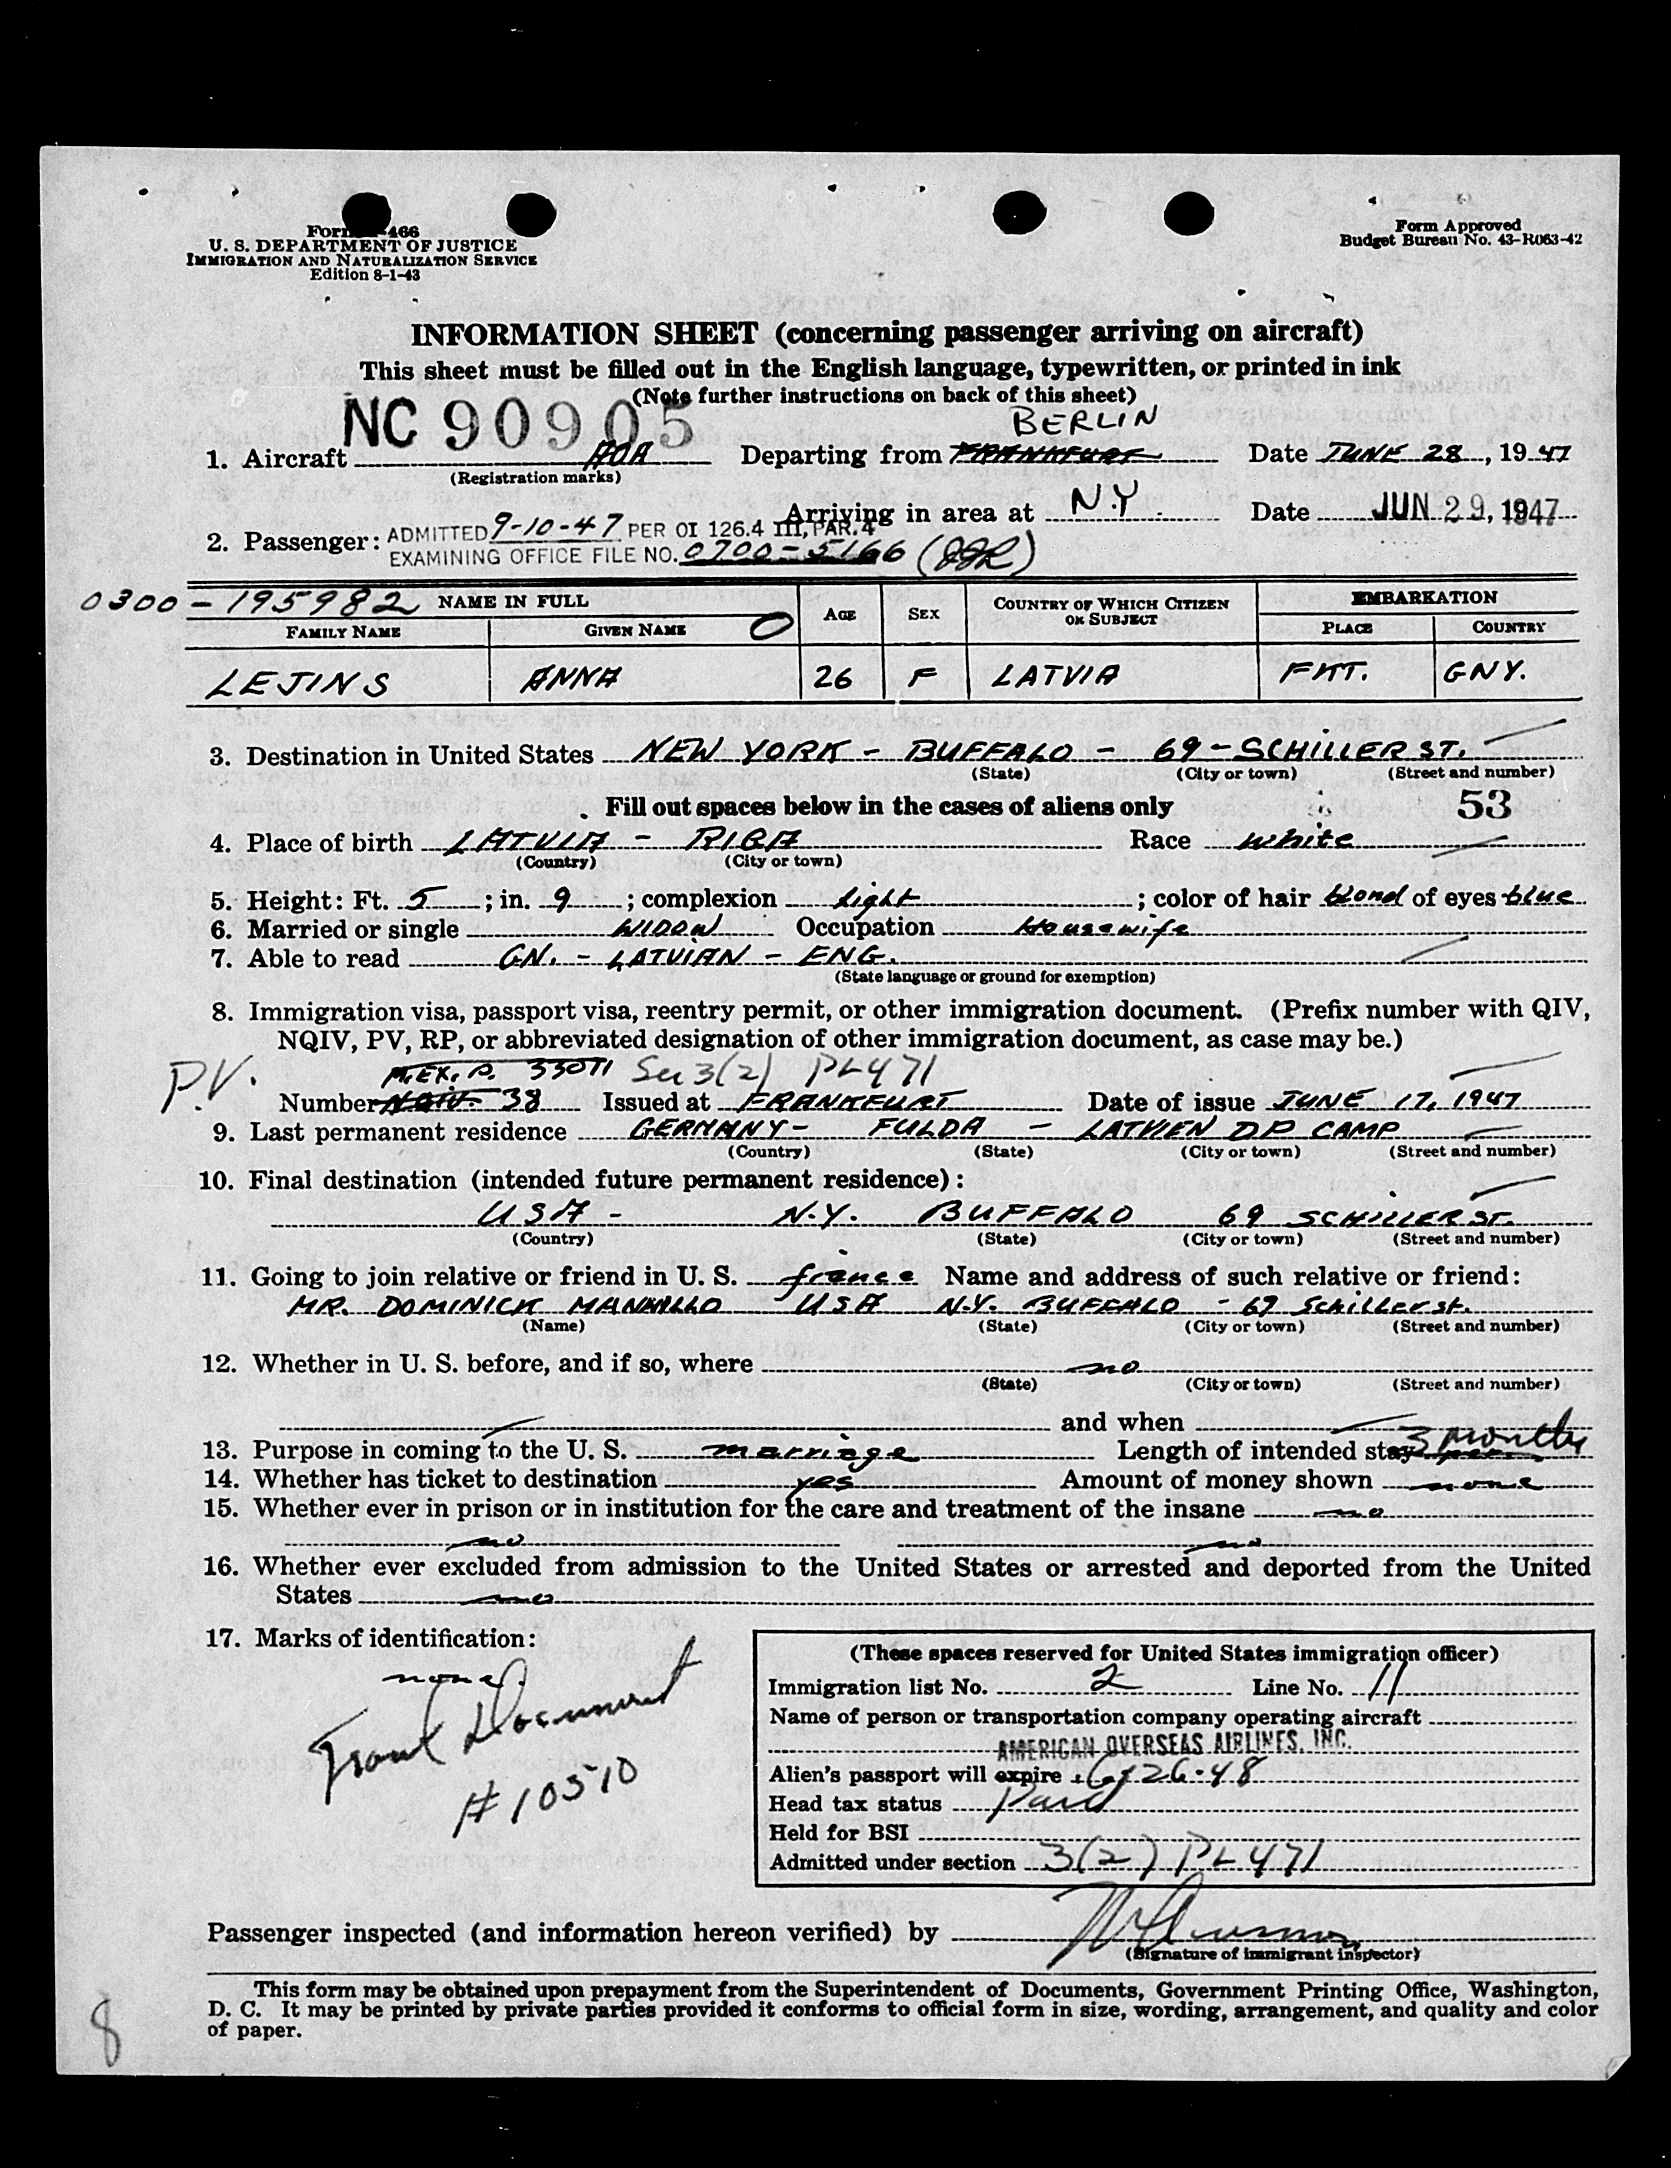 Form 466
U. S. DEPARTMENT OF JUSTICE
IMMIGRATION AND NATURALIZATION SERVICE
Edition 8-1-43
Form Approved
Budget Bureau No. 43-R063-42
INFORMATION SHEET (concerning passenger arriving on aircraft)
This sheet must be filled out in the English language, typewritten, or printed in ink
(Note further instructions on back of this sheet)
NC 90905 BERLIN
1. Aircraft AOA Departing from FRANKFURT Date JUNE 28, 1947
(Registration marks)
Arriving in area at N.Y. Date JUN 29, 1947
2. Passenger: ADMITTED 9-10-47 PER OI 126.4 III, PAR. 4
EXAMINING OFFICE FILE NO. 0700-5166
0300-195982 NAME IN FULL AGE SEX COUNTRY OF WHICH CITIZEN OR SUBJECT EMBARKATION
FAMILY NAME GIVEN NAME PLACE COUNTRY
LEJINS ANNA 26 F LATVIA FKT. GNY.
3. Destination in United States NEW YORK - BUFFALO - 69 - SCHILLER ST.
(State) (City or town) (Street and number)
Fill out spaces below in the cases of aliens only 53
4. Place of birth LATVIA - RIGA Race white
(Country) (City or town)
5. Height: Ft. 5; in. 9; complexion light; color of hair blond of eyes blue
6. Married or single WIDOW Occupation Housewife
7. Able to read GN. - LATVIAN - ENG.
(State language or ground for exemption)
8. Immigration visa, passport visa, reentry permit, or other immigration document. (Prefix number with QIV,
NQIV, PV, RP, or abbreviated designation of other immigration document, as case may be.)
P.V. M.EX.P. 33071 Sec 3(2) PL 471
Number NQIV. 38 Issued at FRANKFURT Date of issue JUNE 17, 1947
9. Last permanent residence GERMANY - FULDA - LATVIEN DP CAMP
(Country) (State) (City or town) (Street and number)
10. Final destination (intended future permanent residence):
USA - N.Y. BUFFALO 69 SCHILLER ST.
(Country) (State) (City or town) (Street and number)
11. Going to join relative or friend in U. S. fiance Name and address of such relative or friend:
MR. DOMINICK USA N.Y. BUFFALO - 69 Schiller st.
(Name) (State) (City or town) (Street and number)
12. Whether in U. S. before, and if so, where no
(State) (City or town) (Street and number)
and when
13. Purpose in coming to the U. S. marriage Length of intended stay 3 months
14. Whether has ticket to destination yes Amount of money shown none
15. Whether ever in prison or in institution for the care and treatment of the insane no
no no
16. Whether ever excluded from admission to the United States or arrested and deported from the United
States no
17. Marks of identification:
none
Travel Document
# 10510
(These spaces reserved for United States immigration officer)
Immigration list No. 2 Line No. 11
Name of person or transportation company operating aircraft
AMERICAN OVERSEAS AIRLINES, INC.
Alien's passport will expire 6-26-48
Head tax status Paid
Held for BSI
Admitted under section 3(2) PL 471
Passenger inspected (and information hereon verified) by
(Signature of immigrant inspector)
This form may be obtained upon prepayment from the Superintendent of Documents, Government Printing Office, Washington,
D. C. It may be printed by private parties provided it conforms to official form in size, wording, arrangement, and quality and color
of paper.
8